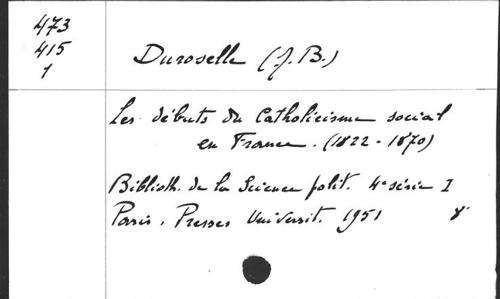 473
415
1
Duroselle (J. B.)
Les débuts du Catholicisme social
en France. (1822-1870)
Biblioth. de la Science polit. 4e série I
Paris, Presses Universit. 1951 8°